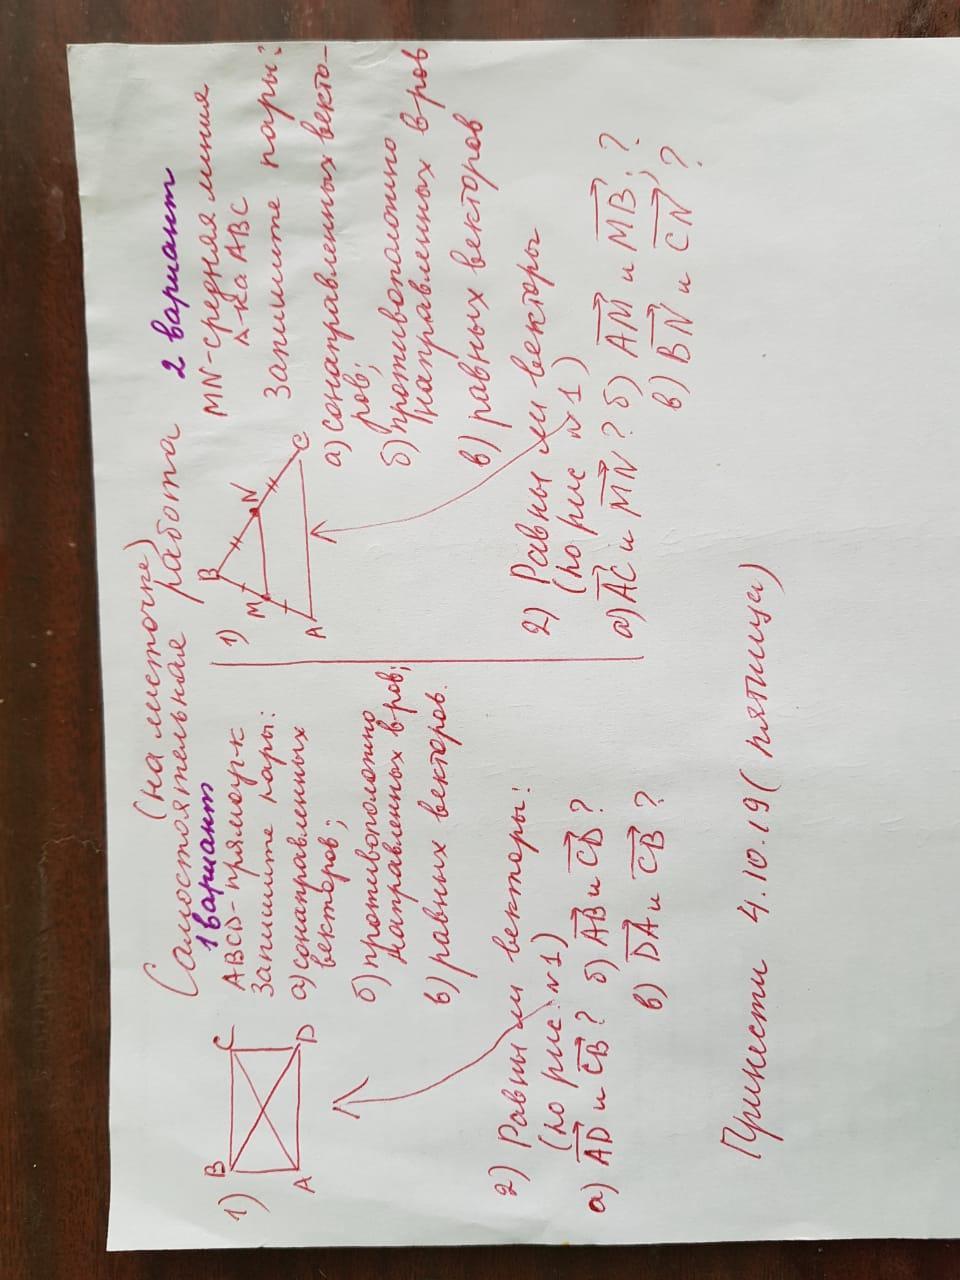 (на листочке)
Самостоятельная работа
1 вариант
1)
B
C
A
D
ABCD-прямоуг-к
Запишите пары:
а) сонаправленных
векторов;
б) противоположно
направленных в-ров;
в) равных векторов.
2) Равны ли векторы:
(по рис. №1)
а) AD и CB? б) AB и CD?
в) DA и CB ?
2 вариант
1)
B
M
N
A
C
MN-средняя линия
Δ-ка ABC
Запишите пары:
а) сонаправленных векто-
ров;
б) противоположно
направленных в-ров
в) равных векторов
2) Равны ли векторы
(по рис №1)
а) AC и MN ? б) AM и MB; ?
в) BN и CN, ?
Принести 4.10.19 (пятница)